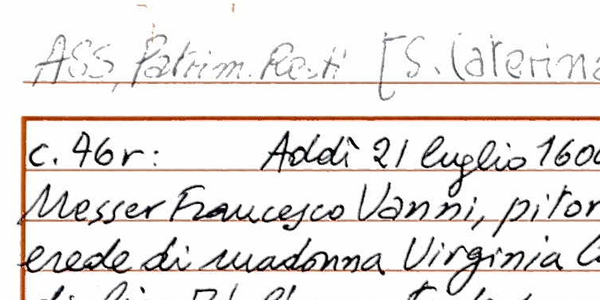 ASS, Patrim. Resti [S. Caterina
c. 46r: Addì 21 luglio 160
Messer Francesco Vanni, pitor
erede di madonna Virginia